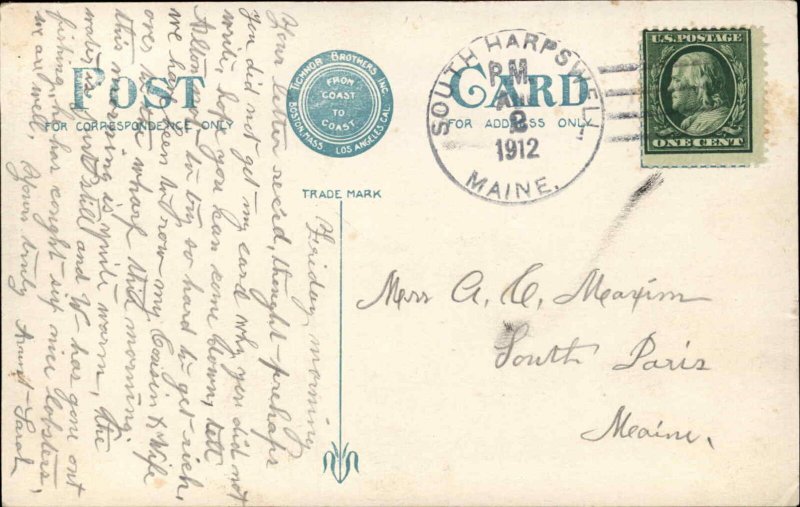 POST CARD
FOR CORRESPONDENCE ONLY
FOR ADDRESS ONLY
TICHNOR BROTHERS INC.
FROM
COAST
TO
COAST
BOSTON, MASS. LOS ANGELES, CAL.
TRADE MARK
SOUTH HARPSWELL
PM
2
1912
MAINE.
U.S. POSTAGE
ONE CENT
Friday, morning
Your letter rec'd, thought perhaps
you did not get my card why you did not
write, hope you have come down, tell
Alton not to try so hard to get rich,
we have been to row my Cousin & Wife
over to the wharf this morning.
this morning is quite warm, the
water is just still and W- has gone out
fishing, he has caught six nice lobsters,
we are well, Yours truly Aunt Sarah
Mrs A. E. Maxim
South Paris
Maine.